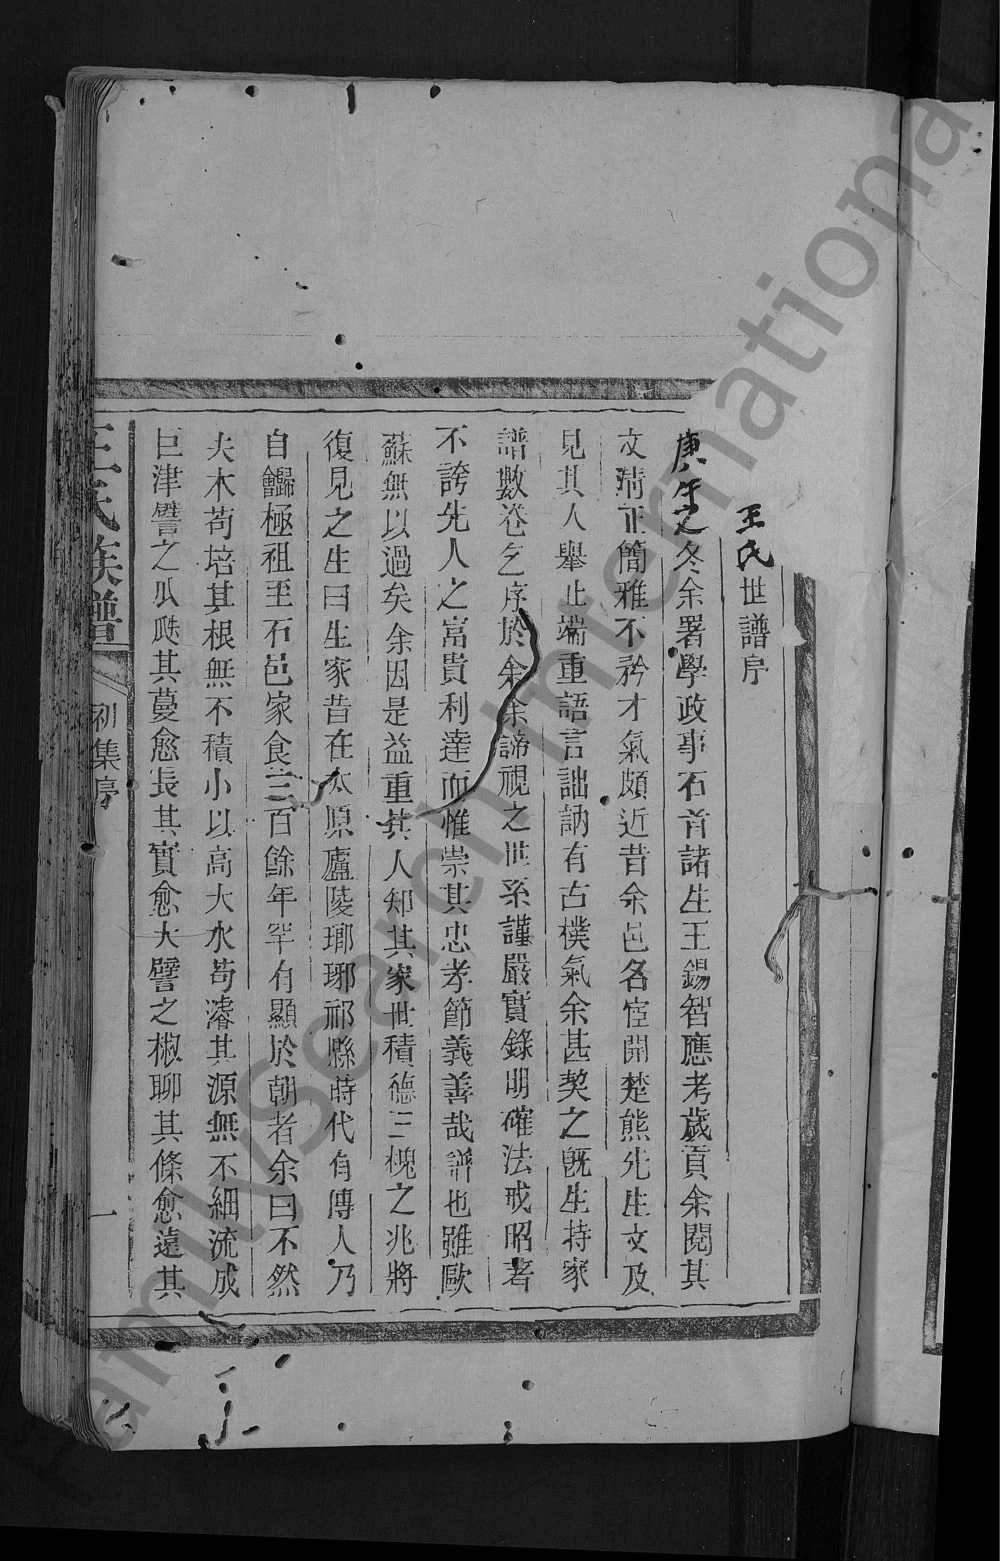 王氏世譜序
庚午之冬余署學政事石首諸生王錫智應考歲貢余閱其
文淸正簡雅不矜才氣頗近昔余邑名宦開楚熊先生文及
見其人舉止端重語言訥有古樸氣余甚契之旣生持家
譜數卷乞序於余余諦視之世系謹嚴實錄明確法戒昭著
不誇先人之富貴利達而惟崇其忠孝節義善哉譜也雖歐
蘇無以過矣余因是益重其人知其家世積德三槐之兆將
復見之生曰生家昔在太原廬陵瑯琊祁縣時代有傳人乃
自歸極祖至石邑家食三百餘年罕有顯於朝者余曰不然
夫木苟培其根無不積小以高大水苟濬其源無不細流成
巨津譬之瓜瓞其蔓愈長其實愈大譬之椒聊其條愈遠其
王氏族譜 初集序 一
FamilySearch International